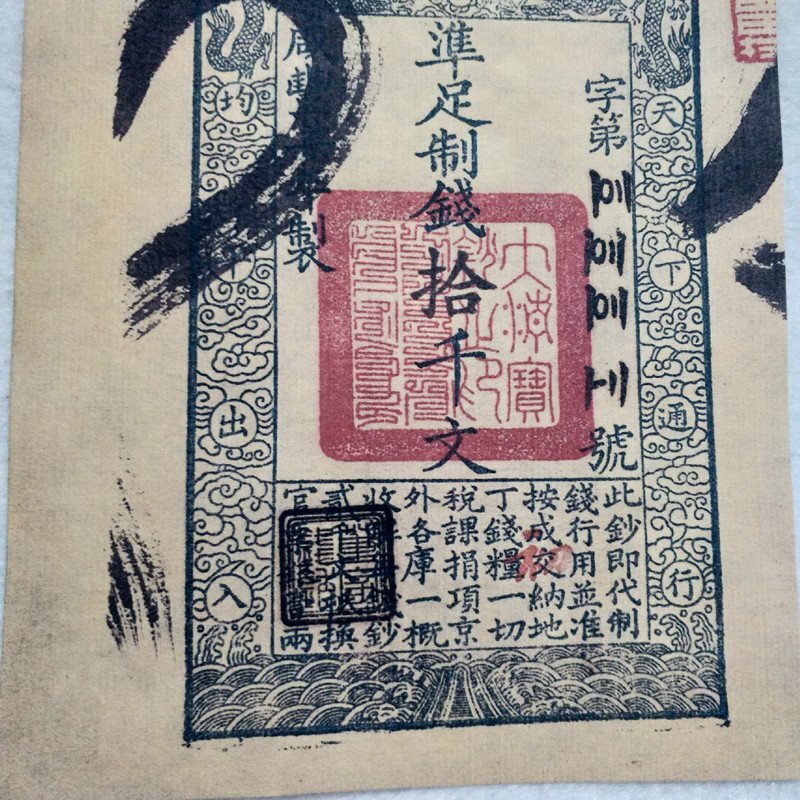 天下通行
字第
號
準足制錢拾千文
年製
大清寶鈔之印
均平出入
此鈔即代制
錢行用並准
按成交納地
丁錢糧一切
稅課捐項京
外各庫一概
收鈔
貳千換
官兩